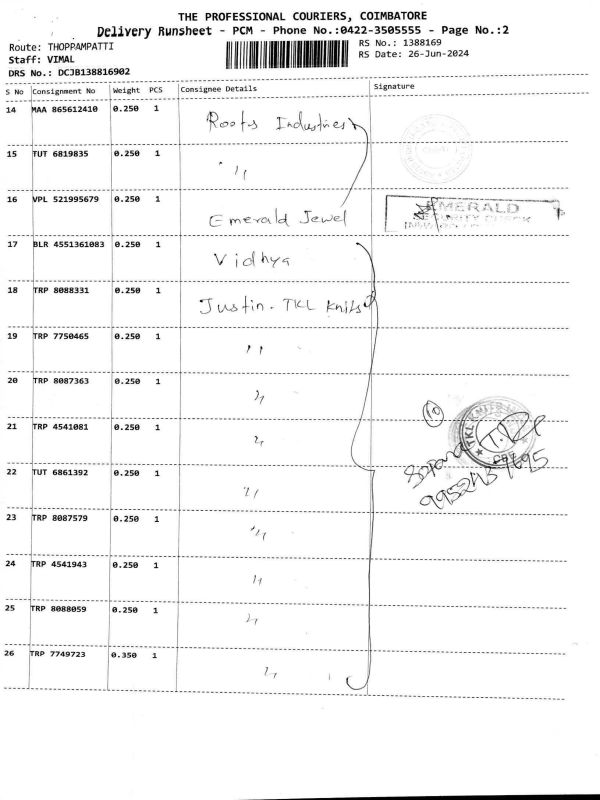 THE PROFESSIONAL COURIERS, COIMBATORE
Delivery Runsheet - PCM - Phone No.:0422-3505555 - Page No.:2
Route: THOPPAMPATTI
RS No.: 1388169
Staff: VIMAL
RS Date: 26-Jun-2024
DRS No.: DCJB138816902
S No Consignment No Weight PCS Consignee Details Signature
14 MAA 865612410 0.250 1 Roots Industries
15 TUT 6819835 0.250 1 "
16 VPL 521995679 0.250 1 Emerald Jewel
EMERALD
SECURITY CHECK
17 BLR 4551361083 0.250 1 Vidhya
18 TRP 8088331 0.250 1 Justin - TKL Knits
19 TRP 7750465 0.250 1 "
20 TRP 8087363 0.250 1 "
10
TKL KNITS
21 TRP 4541081 0.250 1 "
22 TUT 6861392 0.250 1 "
23 TRP 8087579 0.250 1 "
24 TRP 4541943 0.250 1 "
25 TRP 8088059 0.250 1 "
26 TRP 7749723 0.350 1 "